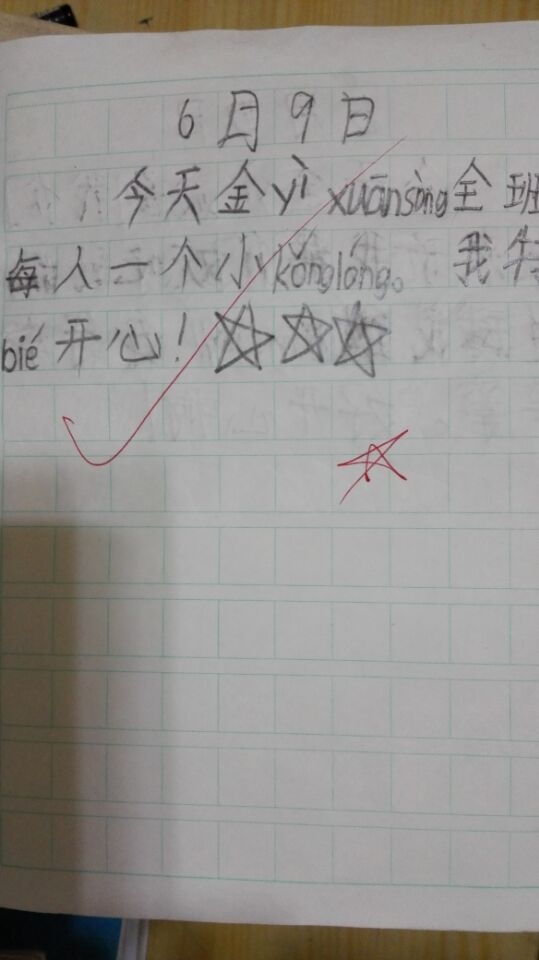 6月9日
今天金yì xuānsòng全班
每人一个小kǒnglóng。我特
bié开心！☆☆☆